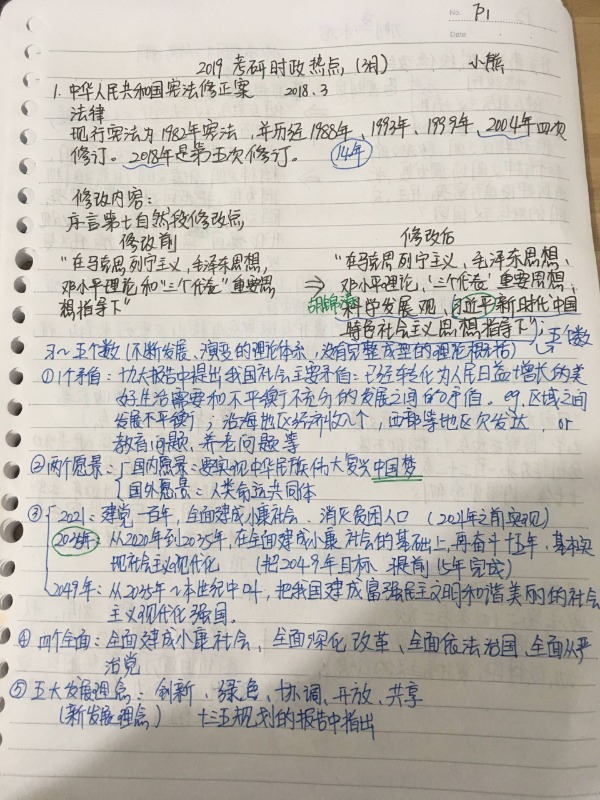 No. P1
Date
2019 考研时政热点 (润) 小熊
1. 中华人民共和国宪法修正案 2018.3
法律
现行宪法为1982年宪法，并历经1988年、1993年、1999年、2004年四次
修订。2018年是第五次修订。 14年
修改内容：
序言第七自然段修改点
修改前 修改后
"在马克思列宁主义，毛泽东思想，
邓小平理论和"三个代表"重要思
想指导下"
⇒
"在马克思列宁主义，毛泽东思想，
邓小平理论，'三个代表'重要思想，
胡锦涛 科学发展观，习近平新时代中国
特色社会主义思想指导下"
五个数
习~五个数（不断发展、演变的理论体系，没有完整成型的理论概括）
①1个矛盾：十九大报告中提出我国社会主要矛盾：已经转化为人民日益增长的美
好生活需要和不平衡不充分的发展之间的矛盾。eg. 区域之间
发展不平衡；沿海地区经济收入个，西部等地区欠发达，or
教育问题、养老问题等
②两个愿景：国内愿景：要实现中华民族伟大复兴中国梦
国外愿景：人类命运共同体
③ 2021：建党一百年，全面建成小康社会、消灭贫困人口 （2021年之前实现）
2035年：从2020年到2035年，在全面建成小康社会的基础上，再奋斗十五年，基本实
现社会主义现代化 （把2049年目标 提前15年完成）
2049年：从2035年~本世纪中叶，把我国建成富强民主文明和谐美丽的社会
主义现代化强国。
④ 四个全面：全面建成小康社会，全面深化改革、全面依法治国、全面从严
治党
⑤ 五大发展理念：创新、绿色、协调、开放、共享
（新发展理念） 十三五规划的报告中指出